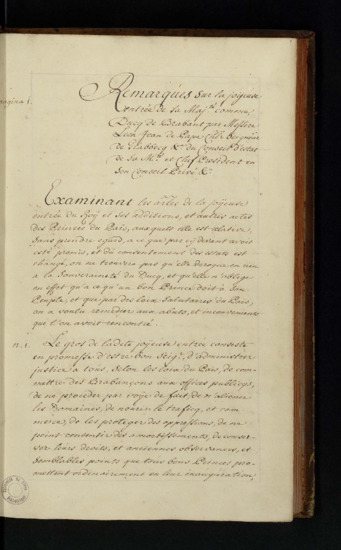 pagina 1.
Remarques sur la joyeuse
entrée de sa Maj.té comme
Ducq de Brabant par Messire
Leon Jean de Pape Chlr Seigneur
de &.a du Conseil d'estat
de sa M.té et Chef President en
son Conseil Privé &.a
Examinant les actes de la joyeuse
entrée du Roy et ses additions, et autres actes
des Princes du Pais, auxquels elle est relative,
sans prendre egard, a ce que par cy devant avoit
esté promis, et du consentement des estats est
changé, on ne trouvera pas qu'elle deroge en rien
a la Souveraineté du Ducq, et qu'elle n'oblige
en effet qu'a ce qu'un bon Prince doit a son
Peuple, et que par des loix Salutaires du Pais,
on a voulu remedier aux abus, et inconveniens
que l'on avoit rencontré.
N. 1. Le gros de ladite joyeuse entrée consiste
en promesse d'estre bon Seig.r, d'administrer
justice a tous, selon les loix du Pais, de com-
mettre des Brabançons aux offices publiqs,
de ne proceder par voye de fait, de n'aliener
les Domaines, de nourir le traficq, et com-
merce, de les proteger des oppressions, de ne
point consentir des amortissements, de conser-
ver leurs droits, et anciennes observances, et
semblables points que tous bons Princes pro-
mettent ordinairement en leur inauguration,